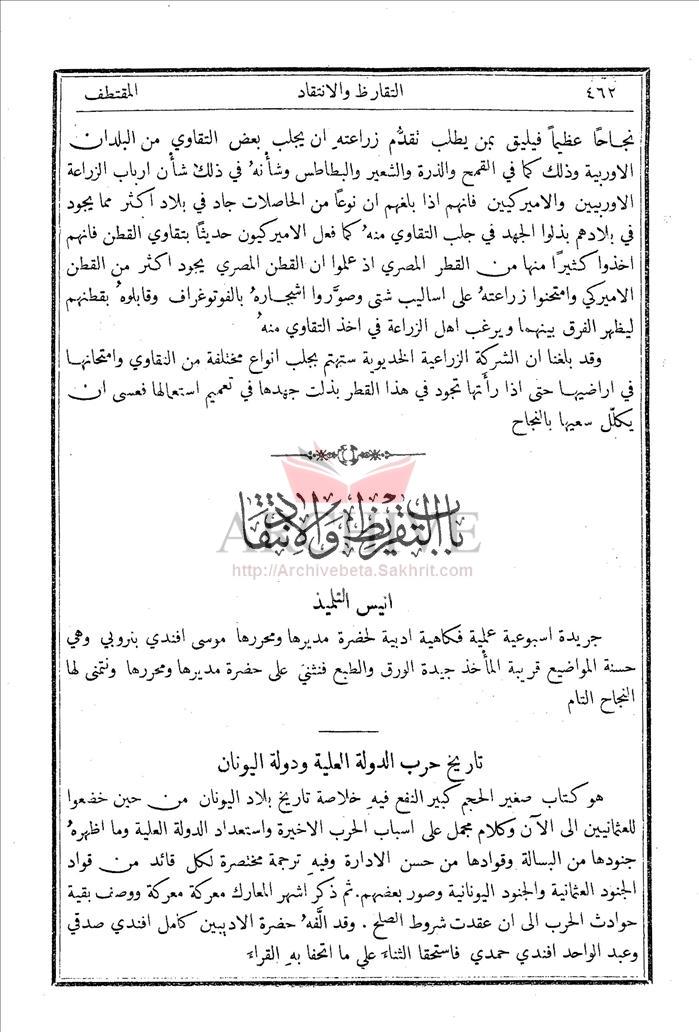 ٤٦٢ التقارظ والانتقاد المقتطف
نجاحًا عظيمًا فيليق بمن يطلب تقدُّم زراعتهِ ان يجلب بعض التقاوي من البلدان
الاوربية وذلك كما في القمح والذرة والشعير والبطاطس وشأنهُ في ذلك شأن ارباب الزراعة
الاوربيين والاميركيين فانهم اذا بلغهم ان نوعًا من الحاصلات جاد في بلاد اكثر مما يجود
في بلادهم بذلوا الجهد في جلب التقاوي منهُ كما فعل الاميركيون حديثًا بتقاوي القطن فانهم
اخذوا كثيرًا منها من القطر المصري اذ علموا ان القطن المصري يجود اكثر من القطن
الاميركي وامتحنوا زراعتهُ على اساليب شتى وصوَّروا اشجارهُ بالفوتوغراف وقابلوهُ بقطنهم
ليظهر الفرق بينهما ويرغب اهل الزراعة في اخذ التقاوي منهُ
وقد بلغنا ان الشركة الزراعية الخديوية ستهتم بجلب انواع مختلفة من التقاوي وامتحانها
في اراضيها حتى اذا رأتها تجود في هذا القطر بذلت جهدها في تعميم استعمالها فعسى ان
يكلَّل سعيها بالنجاح
باب التقريظ والانتقاد
ARCHIVE
http://Archivebeta.Sakhrit.com
انيس التلميذ
جريدة اسبوعية علمية فكاهية ادبية لحضرة مديرها ومحررها موسى افندي بنروبي وهي
حسنة المواضيع قريبة المأخذ جيدة الورق والطبع فنثني على حضرة مديرها ومحررها ونتمنى لها
النجاح التام
تاريخ حرب الدولة العلية ودولة اليونان
هو كتاب صغير الحجم كبير النفع فيهِ خلاصة تاريخ بلاد اليونان من حين خضعوا
للعثمانيين الى الآن وكلام مجمل على اسباب الحرب الاخيرة واستعداد الدولة العلية وما اظهرهُ
جنودها من البسالة وقوادها من حسن الادارة وفيهِ ترجمة مختصرة لكل قائد من قواد
الجنود العثمانية والجنود اليونانية وصور بعضهم. ثم ذكر اشهر المعارك معركة معركة ووصف بقية
حوادث الحرب الى ان عقدت شروط الصلح. وقد الَّفهُ حضرة الاديبين كامل افندي صدقي
وعبد الواحد افندي حمدي فاستحقا الثناءَ على ما اتحفا بهِ القراءَ